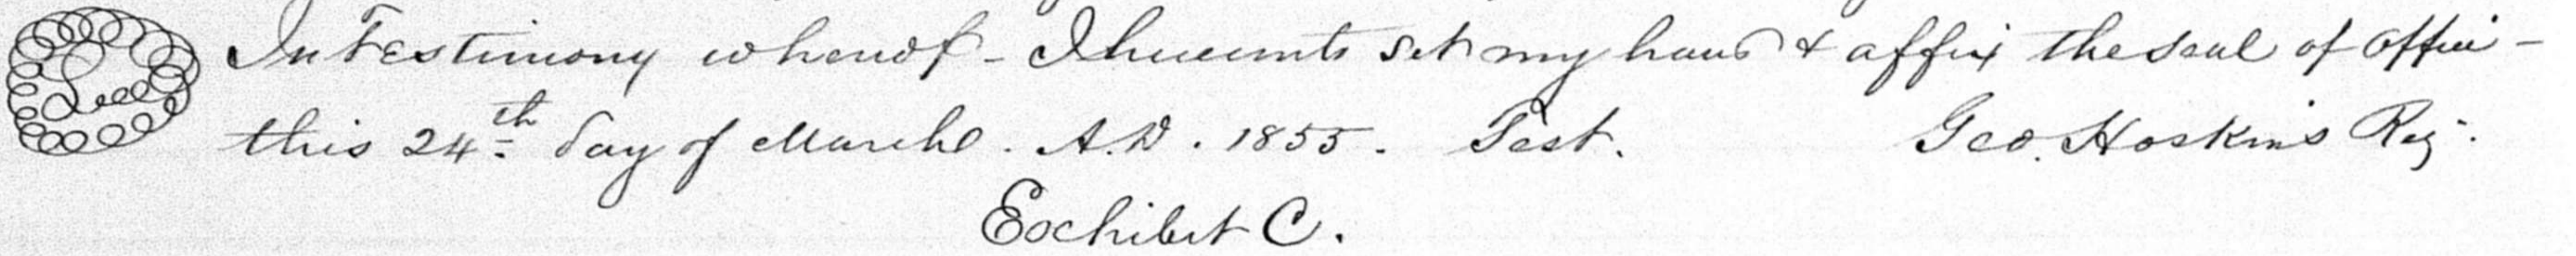 Seal In Testimony whereof - I hereunto set my hand & affix the seal of office -
this 24th day of March. A.D. 1855. Test. Geo. Hoskins Reg.
Exhibit C.